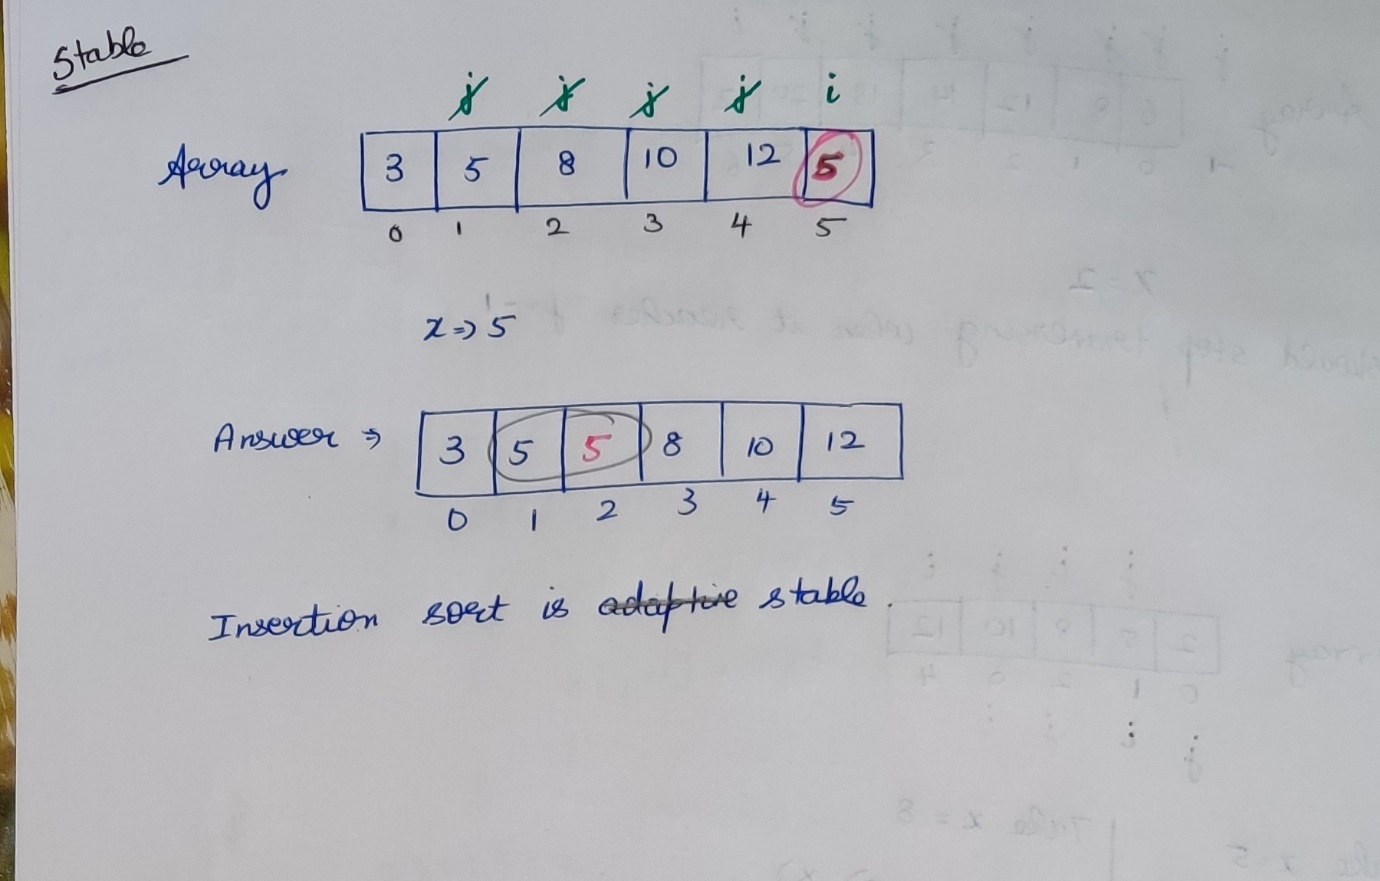 Stable
j j j j i
Array 3 5 8 10 12 5
0 1 2 3 4 5
x => 5
Answer => 3 5 5 8 10 12
0 1 2 3 4 5
Insertion sort is adaptive stable.